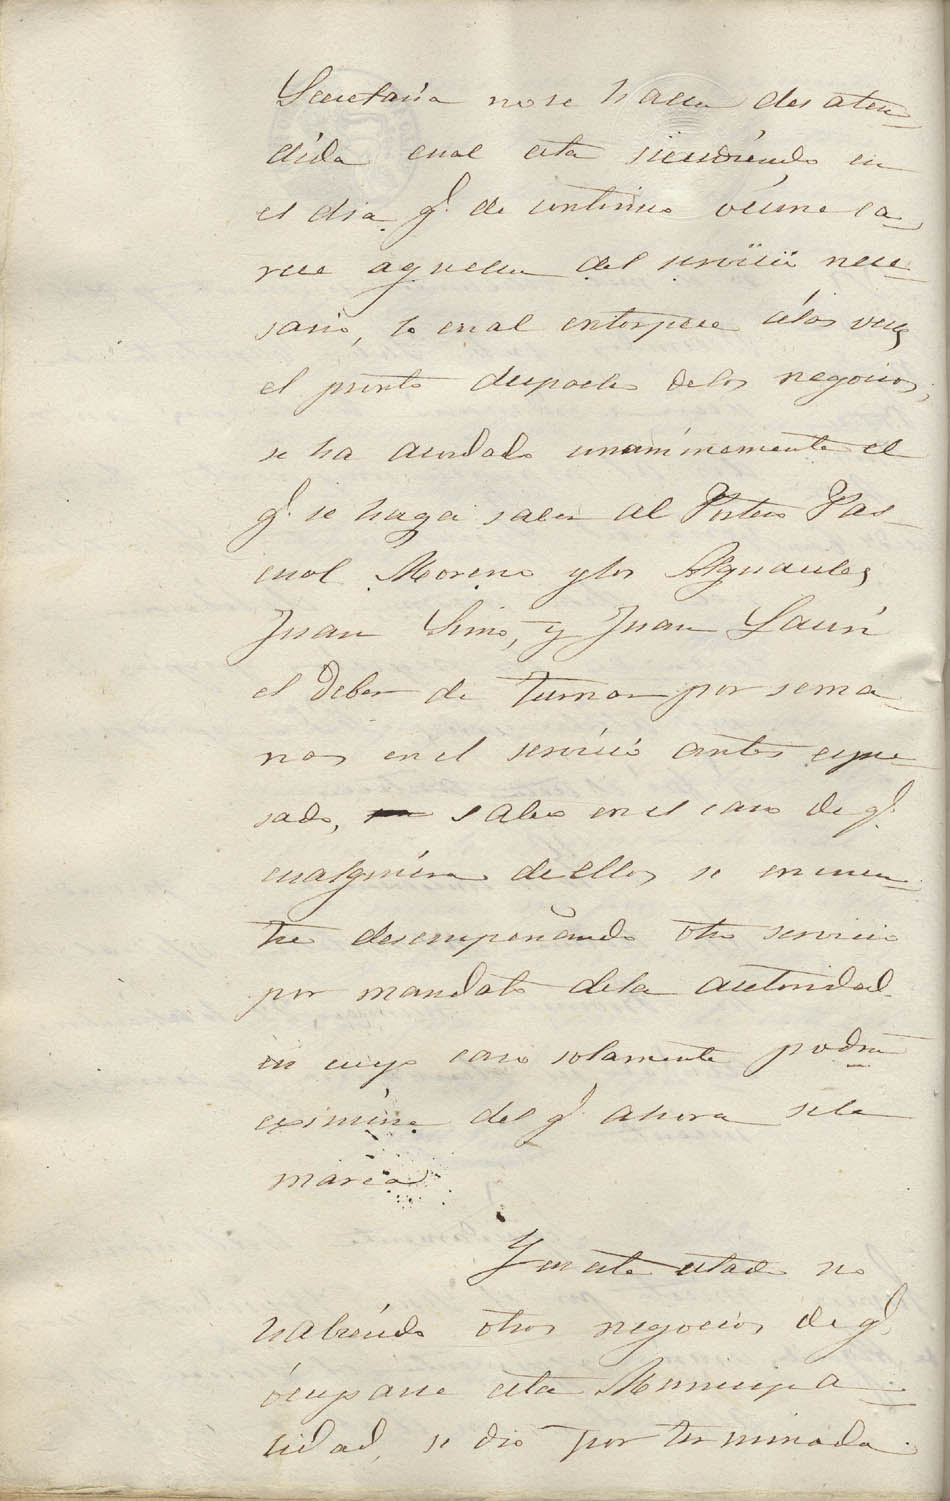 Secretaría no se halla desaten-
dida cual esta sucediendo en
el dia q.e de continuo ócurre ca-
rece aquella del servicio nece-
sario, lo cual entorpece álas veces
el pronto despacho delos negocios,
se ha acordado unanimemente el
q.e se haga saber al Portero Pas-
cual Moreno y los Alguaciles
Juan Simó, y Juan Laurí
el deber de turnar por sema
nas en el servicio antes espre-
sado, salvo en el caso de q.e
cualquiera de ellos se encuen-
tre desempeñando otro servicio
por mandato dela autoridad
en cuyo caso solamente podrá
eximirse del q.e ahora se le
marca.
Y en este estado no
habiendo otros negocios de q.e
ócuparse esta Municipa-
lidad, se dió por terminada